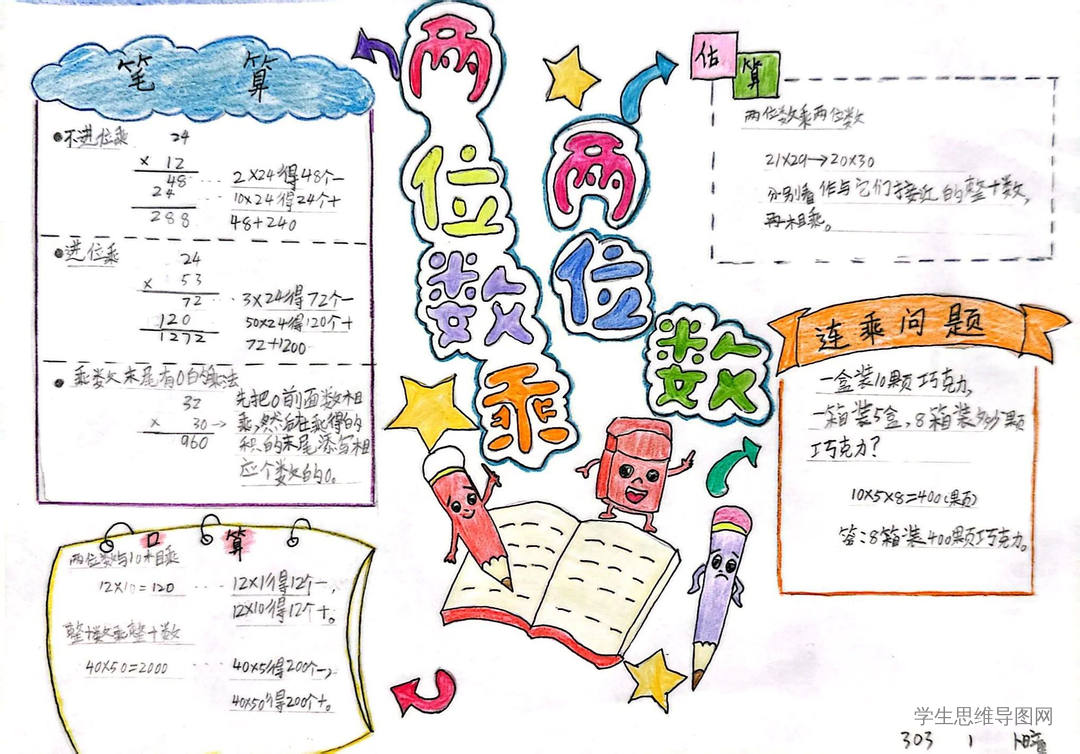 两位数乘
两位数
笔算
不进位乘
24
× 12
48 ··· 2×24得48个一
24 ··· 10×24得24个十
288 48+240
进位乘
24
× 53
72 ··· 3×24得72个一
120 50×24得120个十
1272 72+1200
乘数末尾有0的乘法
32
× 30→
960
先把0前面数相
乘,然后在乘得的
积的末尾添写相
应个数的0。
口算
两位数与10相乘
12×10=120 ··· 12×1得12个一,
12×10得12个十。
整十数乘整十数
40×50=2000 ··· 40×5得200个一,
40×50得200个十。
估算
两位数乘两位数
21×29→20×30
分别看作与它们接近的整十数,
再相乘。
连乘问题
一盒装10颗巧克力,
一箱装5盒,8箱装多少颗
巧克力?
10×5×8=400(颗)
答:8箱装400颗巧克力。
学生思维导图网
303 1